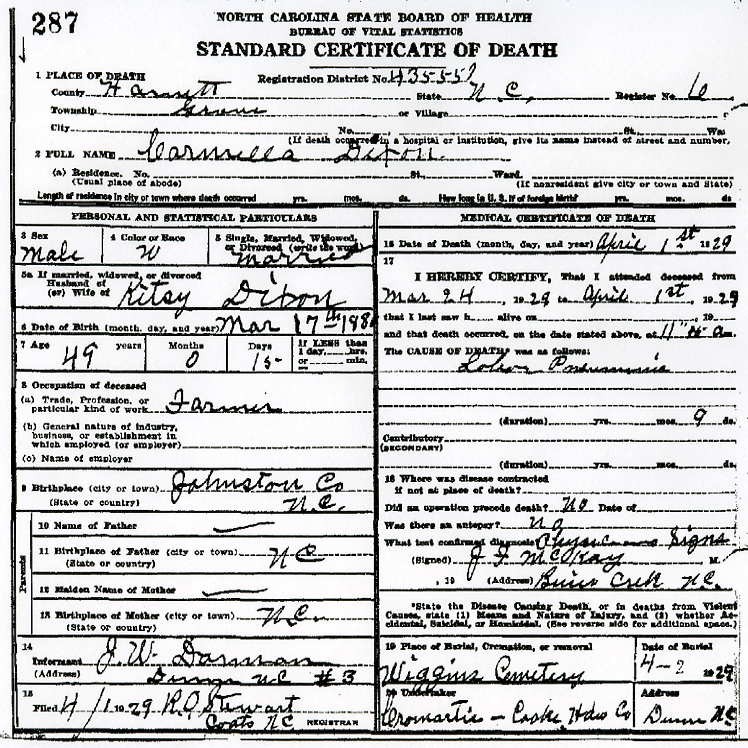 287
NORTH CAROLINA STATE BOARD OF HEALTH
BUREAU OF VITAL STATISTICS
STANDARD CERTIFICATE OF DEATH
1 PLACE OF DEATH Registration District No. 43-5551
County Harnett State N.C. Register No. 6
Township Grove or Village
City No. St. Wa
(If death occurred in a hospital or institution, give its name instead of street and number,
2 FULL NAME Carmilla Dixon.
(a) Residence. No. St. Ward.
(Usual place of abode) (If nonresident give city or town and State)
Length of residence in city or town where death occurred yrs. mos. ds. How long in U. S. if of foreign birth? yrs. mos. ds
PERSONAL AND STATISTICAL PARTICULARS
3 Sex 4 Color or Race 5 Single, Married, Widowed,
or Divorced (write the word)
Male W Married
5a If married, widowed, or divorced
Husband of
(or) Wife of Kitsy Dixon
6 Date of Birth (month, day, and year) Mar 17th 188
7 Age years Months Days If LESS than
1 day, hrs.
or min.
49 0 15
8 Occupation of deceased
(a) Trade, Profession, or
particular kind of work Farmer
(b) General nature of industry,
business, or establishment in
which employed (or employer)
(c) Name of employer
9 Birthplace (city or town) Johnston Co
(State or country) N.C.
Parents
10 Name of Father —
11 Birthplace of Father (city or town) N C
(State or country)
12 Maiden Name of Mother —
13 Birthplace of Mother (city or town) N.C.
(State or country)
14
Informant J. W. Dorman
(Address) Dunn N.C #3
15
Filed 4/1 1929 R.O. Stewart
Coats N.C REGISTRAR
MEDICAL CERTIFICATE OF DEATH
16 Date of Death (month, day, and year) April 1st 1929
17
I HEREBY CERTIFY, That I attended deceased from
Mar 24, 1929 to April 1st, 1929
that I last saw h alive on , 19
and that death occurred, on the date stated above, at 11 a m.
The CAUSE OF DEATH* was as follows:
Lobar Pneumonia
(duration) yrs. mos. 9 ds.
Contributory
(SECONDARY)
(duration) yrs. mos. ds.
18 Where was disease contracted
if not at place of death?
Did an operation precede death? No Date of
Was there an autopsy? No
What test confirmed diagnosis? Signs
(Signed) J F McKay M.
, 19 (Address) Buies Creek N.C.
*State the Disease Causing Death, or in deaths from Violent
Causes, state (1) Means and Nature of Injury, and (2) whether Ac-
cidental, Suicidal, or Homicidal. (See reverse side for additional space.)
19 Place of Burial, Cremation, or removal Date of Burial
Wiggins Cemetery 4-2 1929
20 Undertaker Address
Cromartie - Cooke Hdw Co Dunn N.C